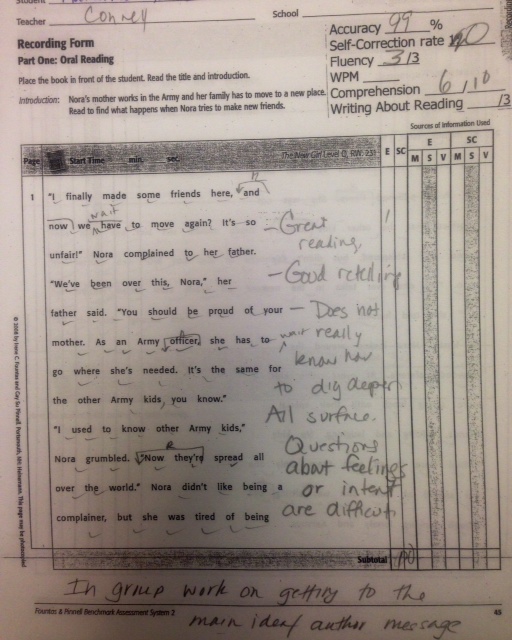 Teacher Conney School
Recording Form
Part One: Oral Reading
Place the book in front of the student. Read the title and introduction.
Introduction: Nora's mother works in the Army and her family has to move to a new place.
Read to find what happens when Nora tries to make new friends.
Accuracy 99 %
Self-Correction rate
Fluency 3/3
WPM
Comprehension 6/10
Writing About Reading /3
Sources of Information Used
E SC
Page Start Time min. sec. The New Girl Level Q, RW: 231 E SC M S V M S V
1 "I finally made some friends here, and
wait
now we have to move again? It's so
unfair!" Nora complained to her father.
"We've been over this, Nora," her
father said. "You should be proud of your
mother. As an Army officer, she has to
wait
go where she's needed. It's the same for
the other Army kids, you know."
"I used to know other Army kids,"
R
Nora grumbled. "Now they're spread all
over the world." Nora didn't like being a
complainer, but she was tired of being
- Great
reading,
- Good retelling
- Does not
really
know how
to dig deeper
All surface.
Questions
about feelings
or intent
are difficult
Subtotal
In group work on getting to the
main idea/author message
Fountas & Pinnell Benchmark Assessment System 2 45